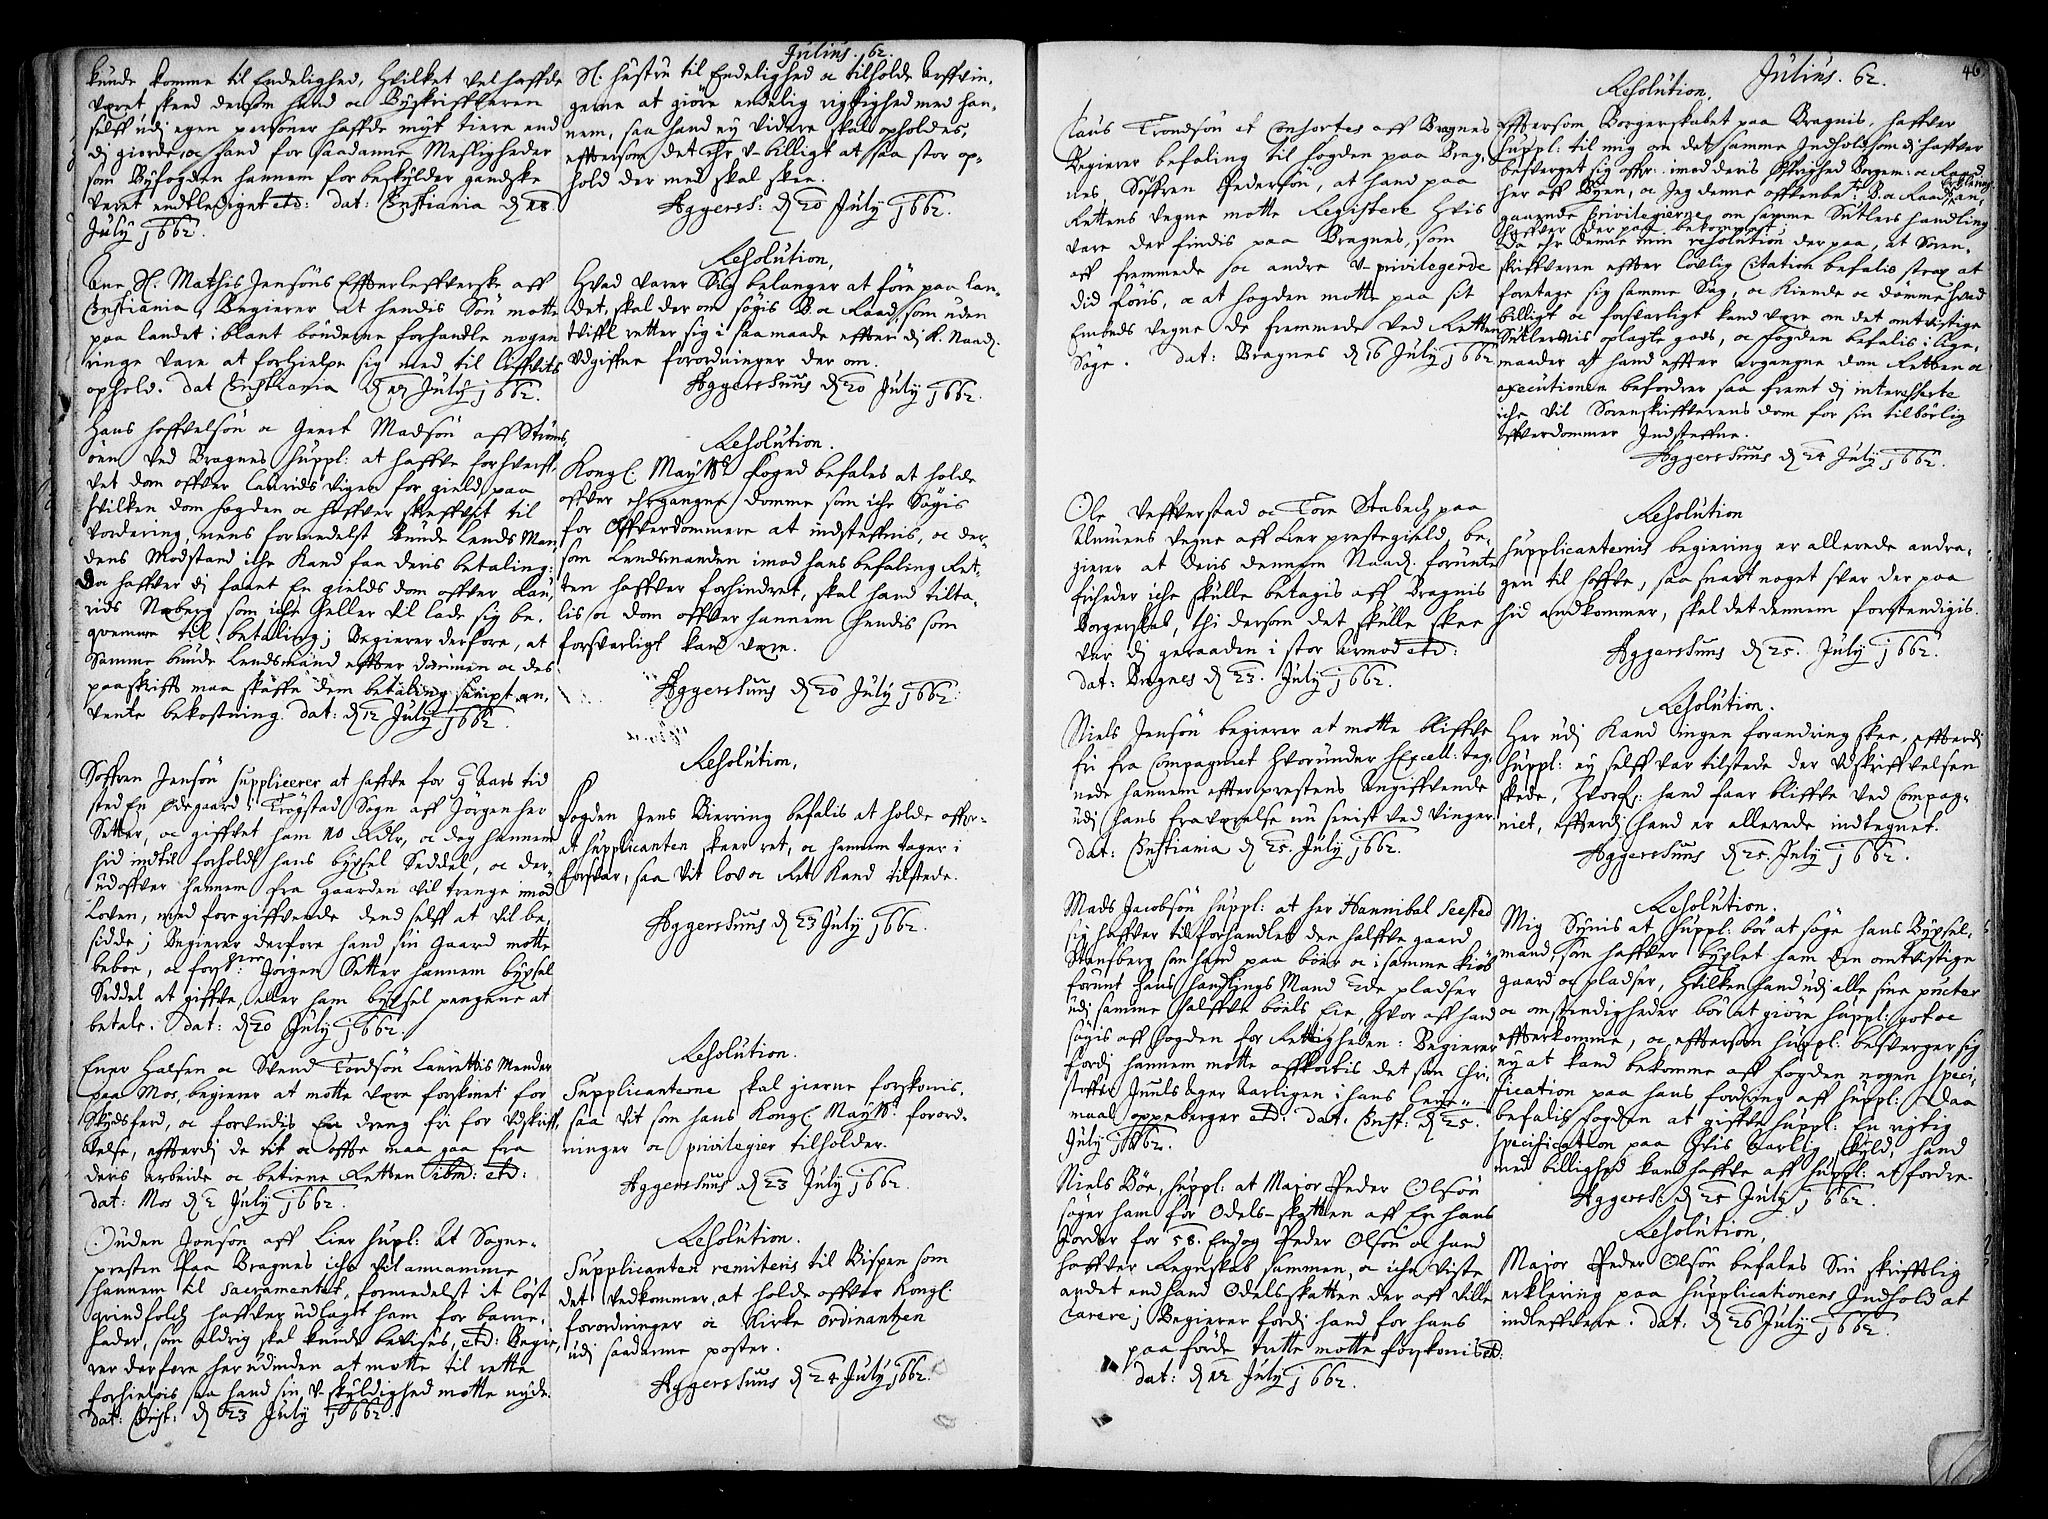 Julius. 62.
kunde komme til Endelighed, Hvilket vel haffde
været skeed dersom hand oc Byskriffveren
selff udj egen personer haffde myt tiere end
dj giorde, oc hand for saadanne Mesligheder
som Byfogden hannem for beskylder gandske
veret endtlediget etc: dat: Christiania d 18
July 1662.
Sl. Mathis Jensøns Effterleffverske aff
Christiania, Begierer at hendis Søn motte
paa landet iblant bønderne forhandle nogen
ringe vare at forhielpe sig med til liffvits
ophold. dat Christiania d 12 July 1662.
Hans hoffvelsøn oc Geert Madsøn aff Strøms,
øen ved Bragnes suppl: at haffve forhverff,
vet dom offver Laurids Vigen for gield, paa
hvilken dom fogden oc haffver skreffvet til
Vordering, mens formedelst bunde Lends Man,
dens Modstand iche kand faa deris betaling:
Da haffver dj faaet En gields dom offver Lau,
rids Næberg som iche heller vil lade sig be,
qvemme til betalling; Begierer derfore, at
Samme bunde Lendsmand effter dommen oc des
paaskrifft maa skaffe dem betaling sampt an,
vente bekostning. dat: d 12 July 1662.
Søffren Jensøn supplicerer at haffve for 9 Aars tid
sted En ødegaard i Trøgstad Sogn aff Jørgen her
Setter, oc giffvet ham 10 Rdlr, oc dog hannem
hid indtil forholdt hans bygsel Seddel, oc der,
udoffver hannem fra gaarden vil trenge imod
Loven, med foregiffvende dend selff at vil be,
sidde; Begierer derfore hand sin Gaard motte
beboe, oc forschr: Jørgen Setter hannem bygsel
Seddel at giffve, eller ham bygsel pengene at
betale. dat: d 20 July 1662.
Ener Halsen oc Svend Tordsøn Laurettis Mender
paa Mos, begierer at motte være forskonet for
Skydsferd, oc forundis En dreng fri for udskriff,
velse, effterdj de tit oc offte maa gaa fra
deris arbeide oc betiene Retten ibm: etc:
dat: Mos d 2 July 1662.
Ouden Jonsøn aff Lier supl: At Sogne-
presten paa Bragnes iche vil annamme
hannem til Sacramentet, formedelst it løst
qvindfolch haffver udlagt ham for barne,
fader, som aldrig skal kunde bevises, etc: Begie,
rer derfore herudinden at motte til rette
forhielpis saa hand sin u-skyldighed motte nyde.
dat: Christ: d 23 July 1662.
Sl: hustru til Endelighed oc tilholde Arffvin-
gerne at giøre endelig rigtighed med han-
nem, saa hand ey videre skal opholdes,
efftersom det Ehr u-billigt at saa stor op-
hold der med skal skee.
Aggersh: d 20 July 1662.
Resolution,
Hvad varer Sig belanger at føre paa lan-
det, skal der om søgis B. oc Raad, som uden
tviffl retter sig i saa maade effter dj K. Naad:
udgiffne forordninger der om.
Aggershuus d 20 July 1662.
Resolution.
Kongl. Mayts foged befales at holde
offver ehrgangne Domme som iche Søgis
for Offverdommere at indsteffnis, oc der-
som Lendsmanden imod hans befaling Ret-
ten haffver forhindret, skal hand tilta-
lis oc dom offver hannem hendis som
forsvarligt kand være.
Aggershuus d 20 July 1662.
Resolution,
Fogden Jens Bierring befalis at holde offver-
at supplicanten skeer ret, oc hannem tager i
forsvar, saa vit lov oc Ret kand tilstede.
Aggershuus d 23 July 1662.
Resolution.
Supplicanterne skal gierne forskonis,
saa vit som hans Kongl Mayts: forord-
ninger oc privilegier tilholder.
Aggershuus d 23 July 1662.
Resolution.
Supplicanten remiteris til Bispen som
det vedkommer, at holde offver Kongl:
forordninger oc Kirke ordinantzen
udj saadanne poster.
Aggershuus d 24 July 1662.
Julius. 62.
46
Claus Trondsøn et Consortes aff Bragnes
Begierer befaling til fogden paa Brag,
nes, Søffren Pedersøn, at hand paa
Rettens vegne motte Registere hvis
vare der findis paa Bragnes, som
aff fremmede oc andre u-privilegerde
did føris, oc at fogden motte paa sit
Embeds vegne de fremmede ved Retten
Søge. dat: Bragnes d 16 July 1662
Ole Veffverstad oc Tore Stabech paa
Almuens vegne aff Lier prestegield, be-
gierer at deris dennem Naad: forunte
friheder iche skulle betagis aff Bragnis
Borgerskab, thi dersom det skulle skee
var dj geraaden i stor Armod etc:
dat: Bragnes d 23. July 1662.
Niels Jensøn begierer at motte bliffve
fri fra Compagniet hvorunder hs Excell: teg,
nede hannem effter prestens Angiffvende
udj hans fraværelse nu senist ved Vinger
dat: Christiania d 25. July 1662.
Mads Jacobsøn suppl: at her Hannibal Seested
sig haffver tilforhandlet den halffve gaard
Stensberg som hand paa boer oc i samme kiøb
forunt hans handlings Mand 2de pladser
udj samme halffve bøels Eie, hvor aff hand
søgis aff fogden for Rettigheden: Begierer
fordj hannem motte affkortis det som Chri,
stoffer Juuls ager Aarligen i hans leye-
maal oppeberger etc: dat: Christ: d 25.
July 1662.
Niels Bøe, suppl: at Major Peder Olsøn
søger ham for Odels-skatten aff En hans
Jorder for 58. Endog Peder Olsøn oc hand
haffver Regnskab sammen, oc iche viste
andet end hand Odelsskatten der aff ville
Cavere; Begierer fordj hand for hans
paaførde trette motte forskonis etc:
dat: d 12 July 1662.
Resolution.
Effttersom Borgerskabet paa Bragnis, haffver
suppl: til mig om det samme Indhold som dj haffver
besverget sig offver imod deris Øffrighed Borgem: oc Raad
her aff Byen, oc Jeg denne offvenbe: B. oc Raadts an,
gaaende Privilegierne, om samme Sutlers handling
haffver der paa bekommet;
Da Ehr denne min resolution der paa, at Soren-
skriffveren effter lovlig Citation befalis strax at
foretage sig samme Sag, oc kiende oc dømme hvad
billigt oc forsvarligt kand være om det omtvistige
Sutlernis oplagte gods, oc fogden befalis i lige,
maader at hand effter ergangne dom Retten oc
executionen befordrer saa fremt dj interesserte
iche vil Sorenskriffverens dom for sin tilbørlig
offverdommer Indsteffne.
Aggershuus d 24 July 1662.
Resolution
Supplicanternis begiering er allerede andra-
gen til hoffve, saa snart noget svar der paa
hid andkommer, skal det dennem forstendigis.
Aggershuus d 25. July 1662.
Resolution.
Her udj kand ingen forandring skee, effterdj
suppl: ey selff var tilstede der udskriffvelsen
skede, hvorfr: hand faar bliffve ved Compag-
niet, effterdj hand er allerede indtegnet.
Aggershuus d 25. July 1662.
Resolution.
Mig Synis at suppl: bør at søge hans Bygsel,
mand, som haffver bygslet ham den omtvistige
gaard oc pladser, hvilken hand udj alle sine puncter
oc omstendigheder bør at giøre suppl: got oc
effterkomme, oc effttersom suppl: besverger sig
ey at kand bekomme aff fogden nogen speci,
fication paa hans fordring aff suppl: Daa
befalis fogden at giffve suppl: En rigtig
specification paa hvis Aarlig skyld, hand
med billighed kand haffve aff suppl: at fordre.
Aggersh: d 25 July 1662.
Resolution,
Major Peder Olsøn befales Sin skrifftlig
erklering paa supplicationens Indhold at
indleffvere. dat: d 26 July 1662.